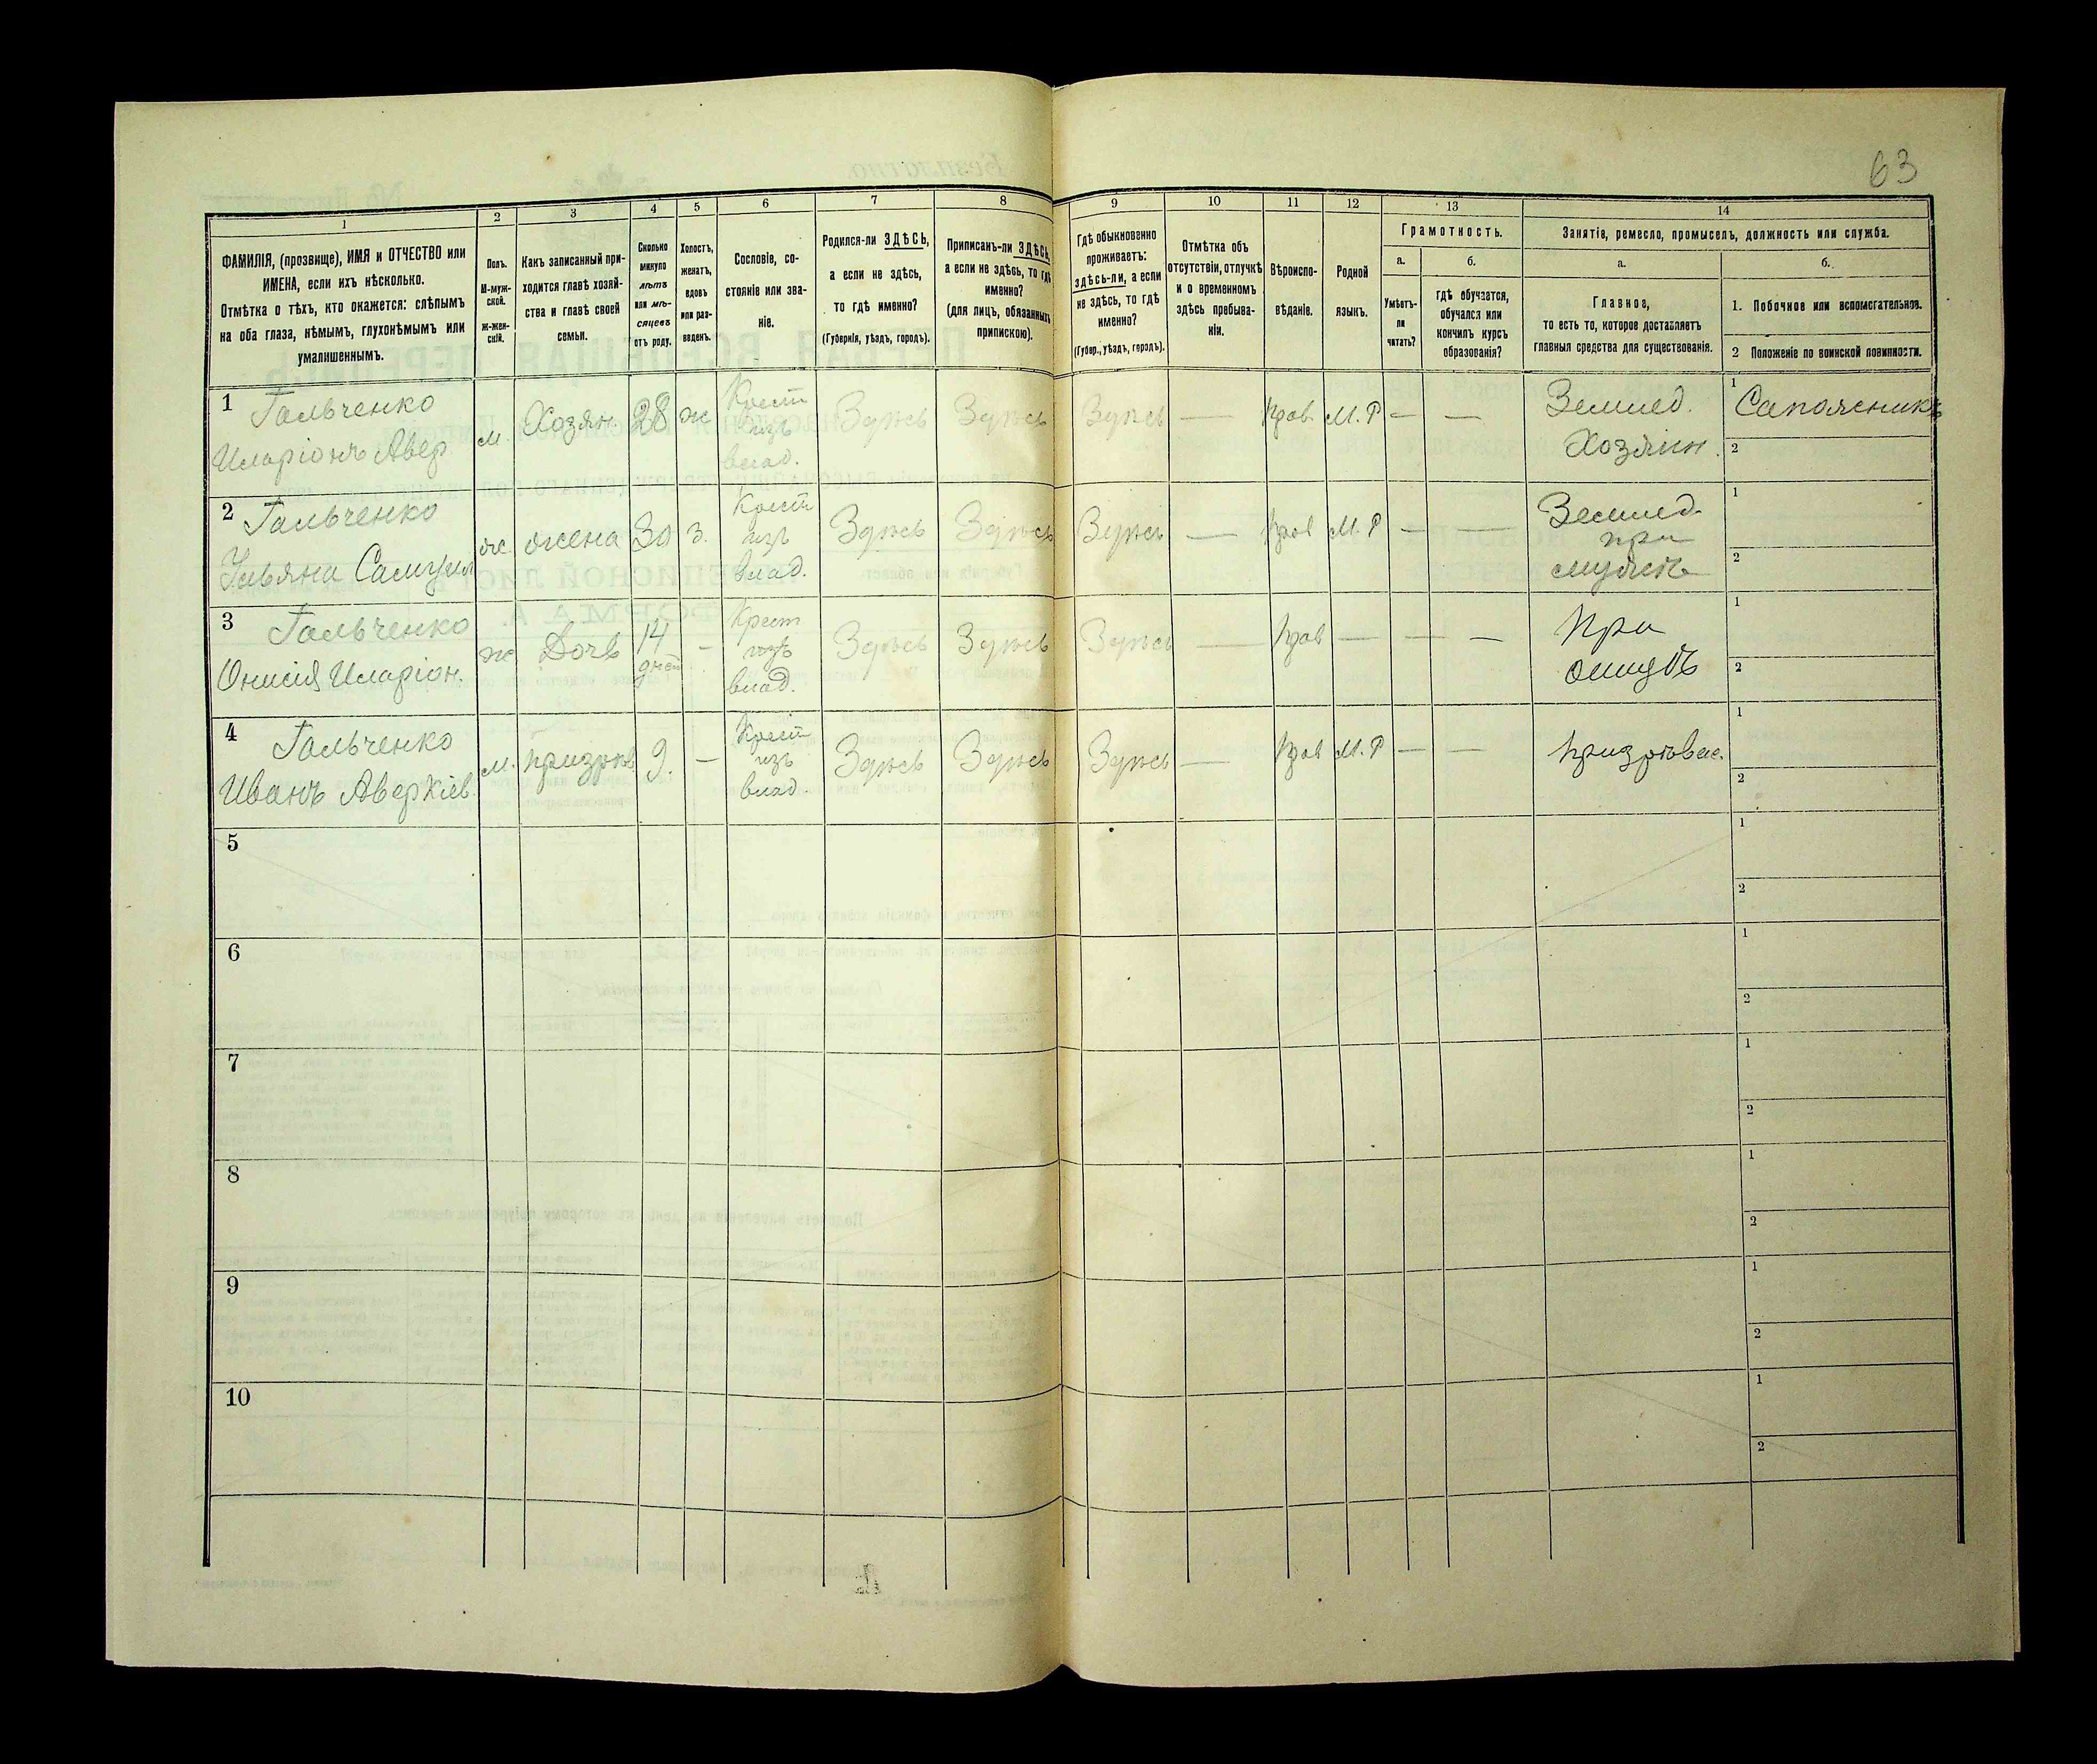 63
1
2
3
4
5
6
7
8
9
10
11
12
13
14
ФАМИЛІЯ, (прозвище), ИМЯ и ОТЧЕСТВО или
ИМЕНА, если ихъ нѣсколько.
Отмѣтка о тѣхъ, кто окажется: слѣпымъ
на оба глаза, нѣмымъ, глухонѣмымъ или
умалишеннымъ.
Полъ.
М-муж-
ской.
Ж-жен-
скій.
Какъ записанный при-
ходится главѣ хозяй-
ства и главѣ своей
семьи.
Сколько
минуло
лѣтъ
или мѣ-
сяцевъ
отъ роду.
Холостъ,
женатъ,
вдовъ
или раз-
веденъ.
Сословіе, со-
стояніе или зва-
ніе.
Родился-ли ЗДѢСЬ,
а если не здѣсь,
то гдѣ именно?
(Губернія, уѣздъ, городъ).
Приписанъ-ли ЗДѢСЬ,
а если не здѣсь, то гдѣ
именно?
(для лицъ, обязанныхъ
припискою).
Гдѣ обыкновенно
проживаетъ:
здѣсь-ли, а если
не здѣсь, то гдѣ
именно?
(Губер., уѣздъ, городъ).
Отмѣтка объ
отсутствіи, отлучкѣ
и о временномъ
здѣсь пребыва-
ніи.
Вѣроиспо-
вѣданіе.
Родной
языкъ.
Грамотность.
а.
Умѣетъ-
ли
читать?
б.
гдѣ обучается,
обучался или
кончилъ курсъ
образованія?
Занятія, ремесло, промыселъ, должность или служба.
а.
Главное,
то есть то, которое доставляетъ
главныя средства для существованія.
б.
1. Побочное или вспомогательное.
2 Положеніе по воинской повинности.
1 Гальченко
Иларіонъ Авер
м.
Хозян.
28
ж
Крест
изъ
влад.
Здѣсь
Здѣсь
Здѣсь
—
прав.
М.Р
—
—
Землед.
Хозяин.
1 Сапожникъ
2
2 Гальченко
Ульяна Самуил
ж.
жена
30
з.
Крест
изъ
влад.
Здѣсь
Здѣсь
Здѣсь
—
прав
М.Р
—
—
Землед.
при
мужѣ
1
2
3 Гальченко
Онисія Иларіон.
ж
Дочь
14
дней
-
Крест
изъ
влад.
Здѣсь
Здѣсь
Здѣсь
—
прав
—
—
—
При
отцѣ
1
2
4 Гальченко
Иванъ Аверкіев
м.
призрѣв
9.
—
Крест
изъ
влад.
Здѣсь
Здѣсь
Здѣсь
—
прав
М.Р
—
—
призрѣвае.
1
2
5
1
2
6
1
2
7
1
2
8
1
2
9
1
2
10
1
2